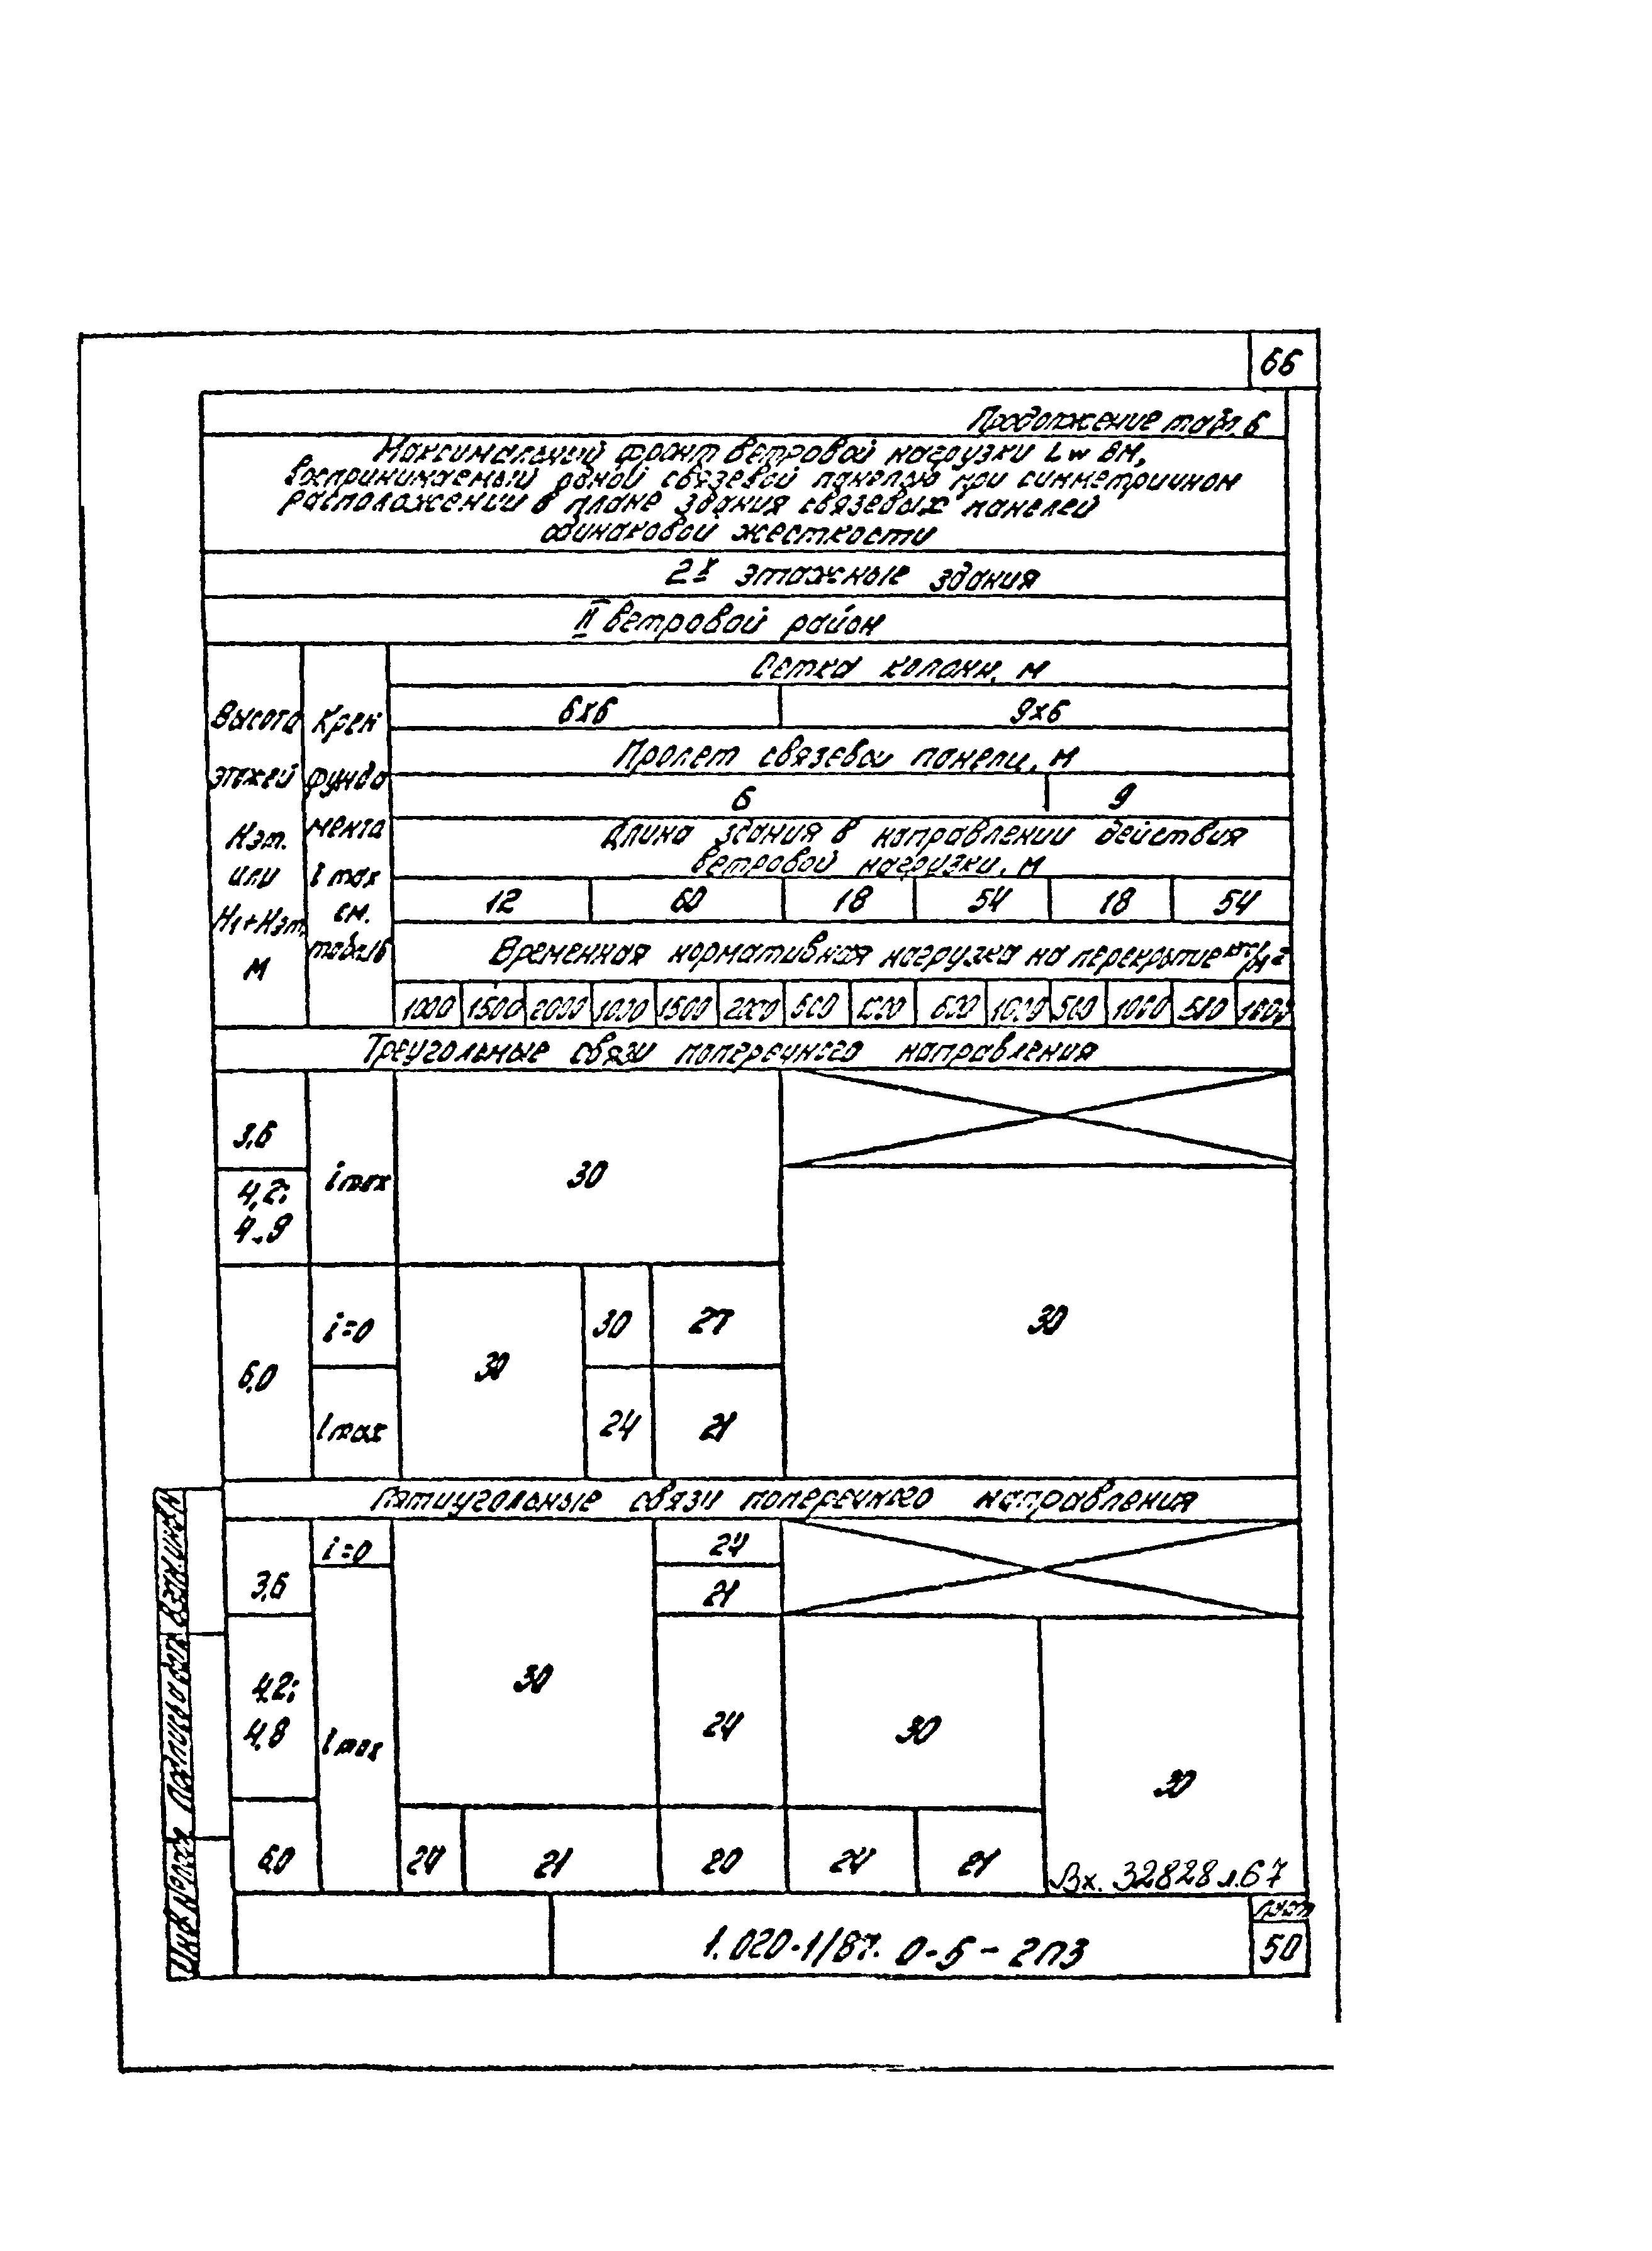 66
Продолжение табл. 6
Максимальный фронт ветровой нагрузки Lw в м,
воспринимаемый одной связевой панелью при симметричном
расположении в плане здания связевых панелей
одинаковой жесткости
2х этажные здания
II ветровой район
Высота
этажей
Нэт.
или
Н1+Нэт,
м
Крен
фунда
мента
i max
см.
Сетка колонн, м
6х6 9х6
Пролет связевой панели, м
6 9
Длина здания в направлении действия
ветровой нагрузки, м
12 60 18 54 18 54
Временная нормативная нагрузка на перекрытие кгс/м2
1000 1500 2000 1000 1500 2000 500 1000 500 1000 500 1000 500 1000
Треугольные связи поперечного направления
3,6
4,2;
4,8
i max
30
30
6,0
i=0
30
30 27
i max
24 21
Пятиугольные связи поперечного направления
3,6
i=0
24
21
4,2;
4,8
i max
30
24
30
30
6,0
24 21 20 24 21
Вх. 32828 л.67
1.020-1/87. 0-5-2ПЗ
лист
50
Инв.№подл. Подпись и дата Взам.инв.№